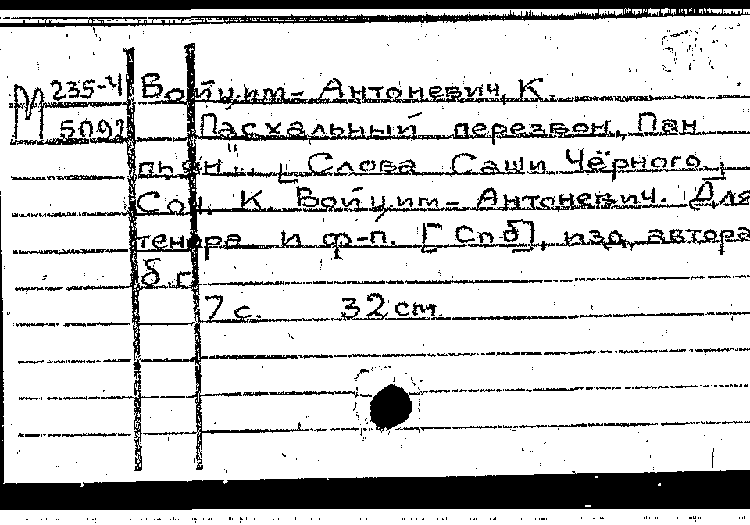 М 235-4 Войцит-Антоневич, К.
5092 Пасхальный перезвон, Пан
пьян". [Слова Саши Чёрного.]
Соч. К. Войцит-Антоневич. Для
тенора и ф-п. [Спб], изд. автора
б.г.
7 с. 32 cm